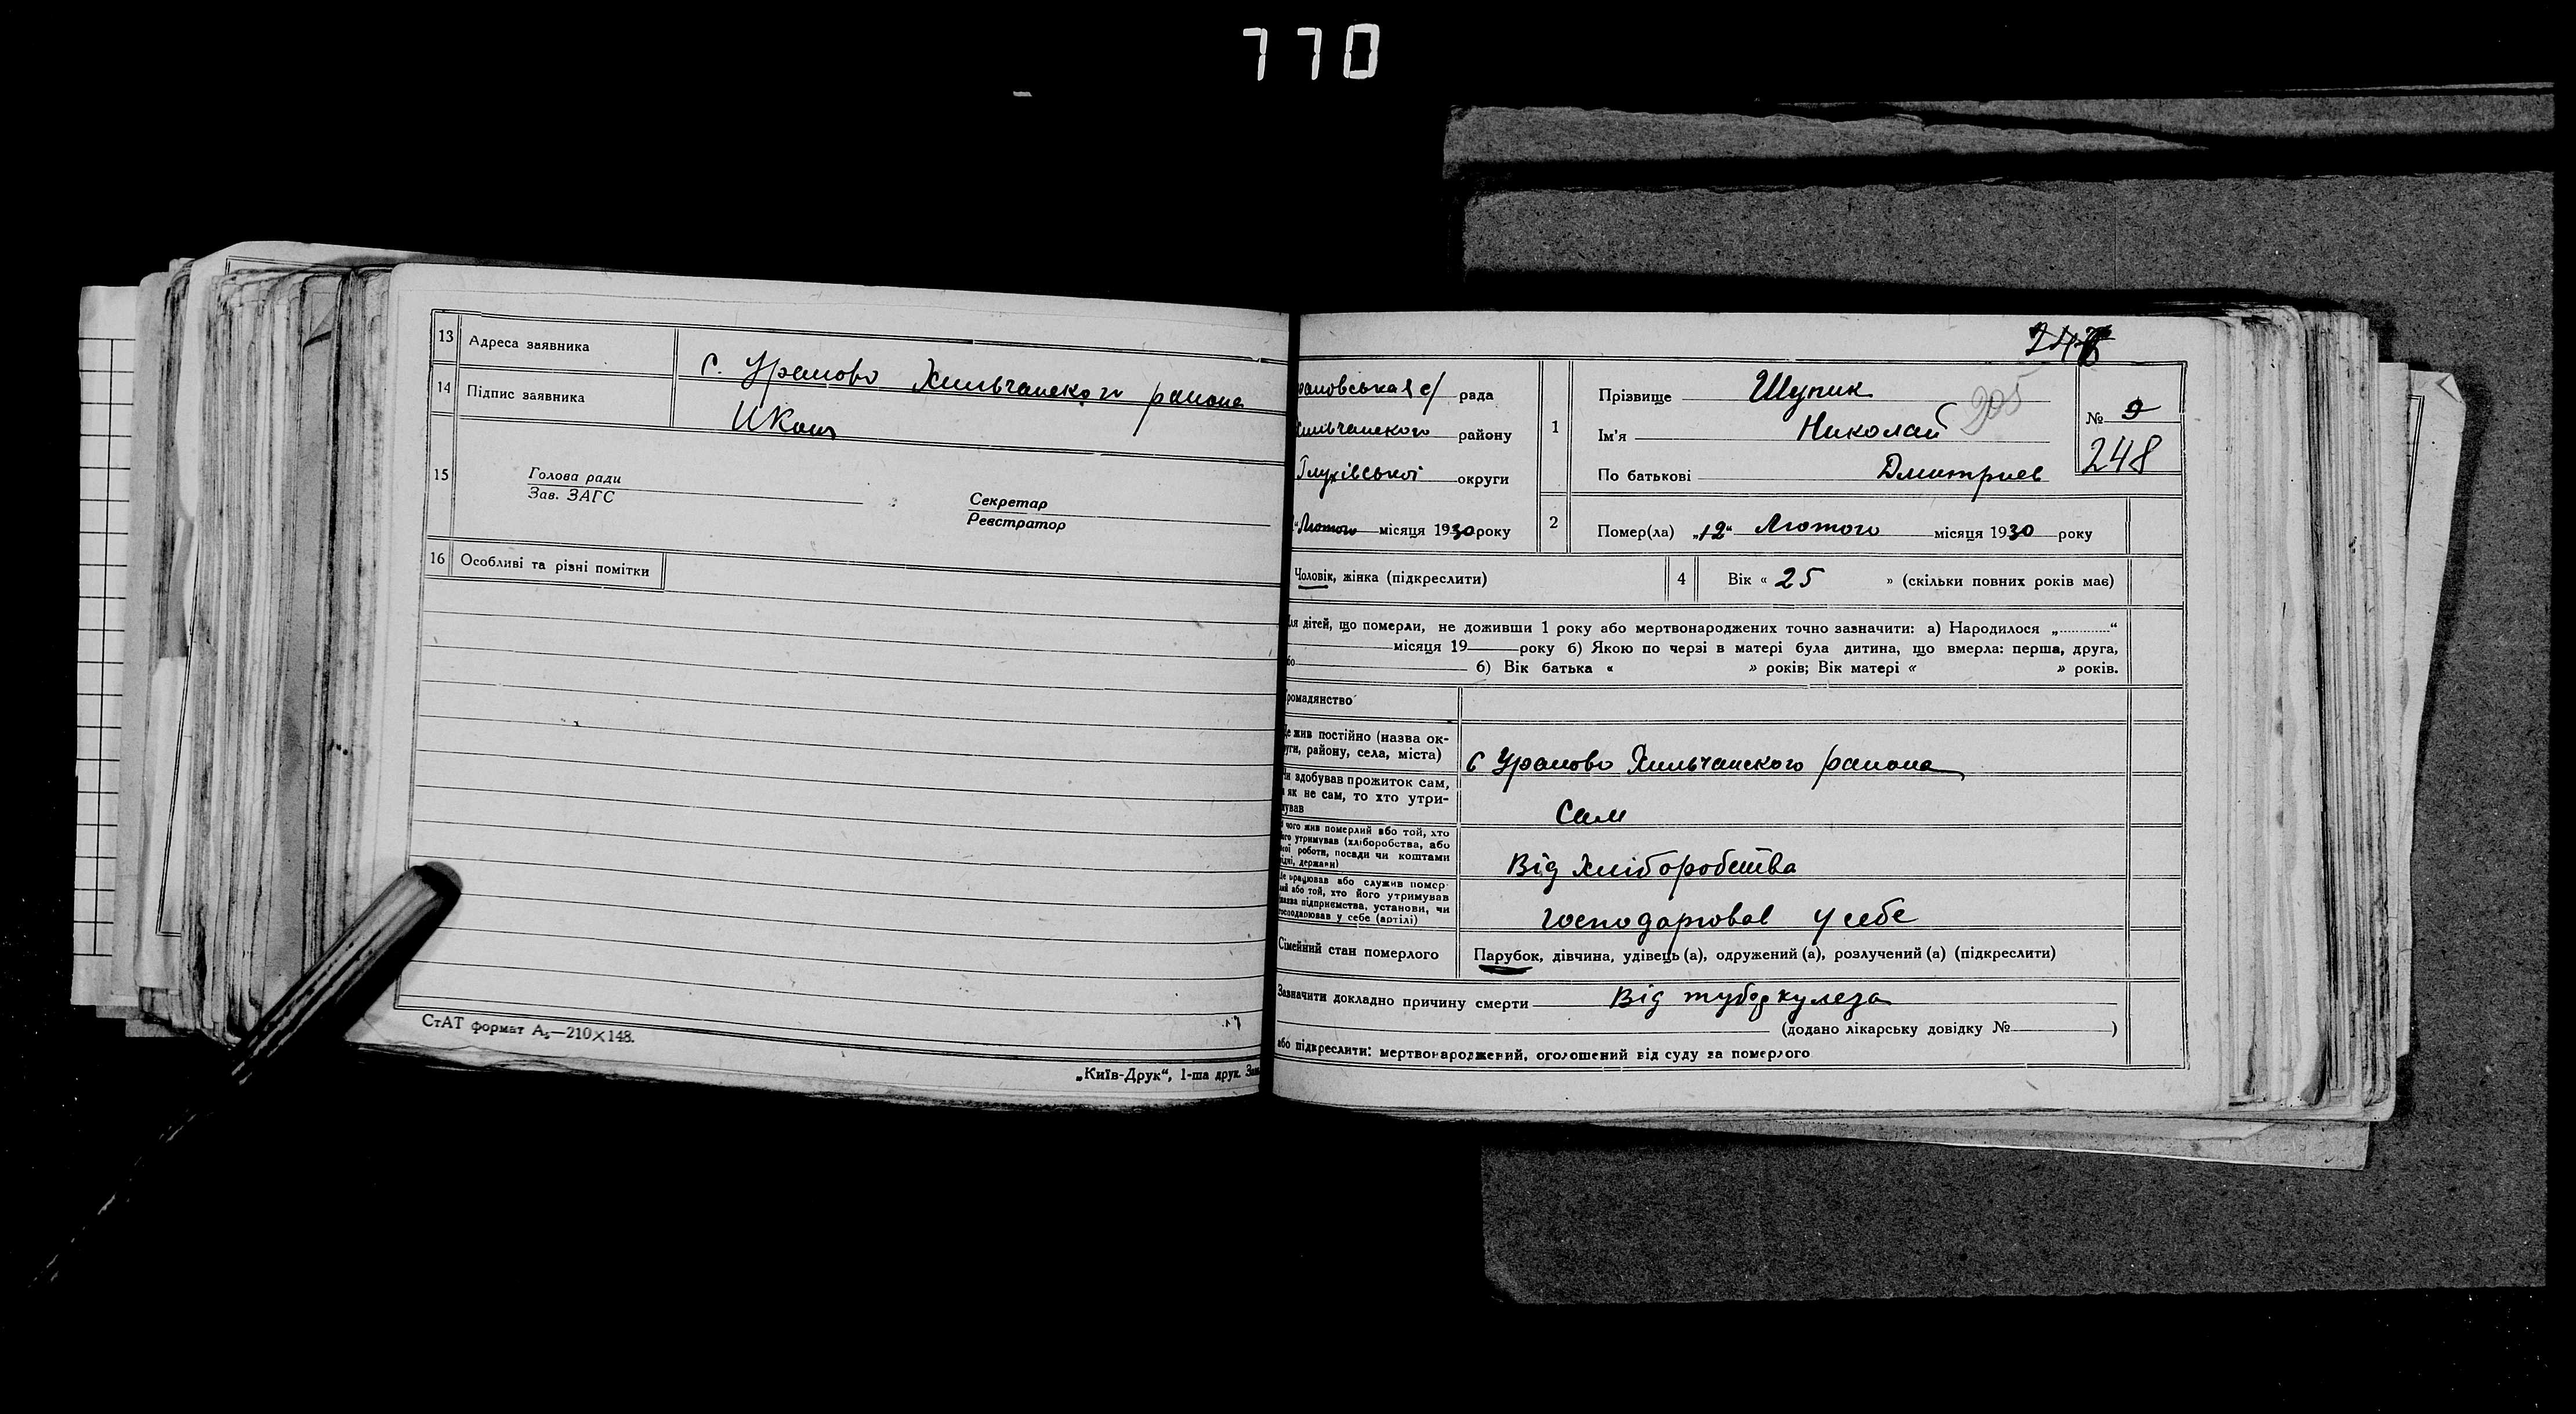 770
13 Адреса заявника с. Уралово Хильчанского района
14 Підпис заявника
15 Голова ради
Зав. ЗАГС
Секретар
Реєстратор
16 Особливі та різні помітки
СтАТ формат А5—210×148.
„Київ-Друк“, 1-ша друк. Зам
248
раловська с/ рада
хильчанского району
Глухівської округи
„Лютого місяця 1930 року
1 Прізвище Шупик
Ім'я Николай 205
По батькові Дмитриев
№ 9
248
2 Помер(ла) „12“ Лютого місяця 1930 року
Чоловік, жінка (підкреслити)
4 Вік « 25 » (скільки повних років має)
ля дітей, що померли, не доживши 1 року або мертвонароджених точно зазначити: а) Народилося „............“
місяця 19 року б) Якою по черзі в матері була дитина, що вмерла: перша, друга,
бо б) Вік батька « » років; Вік матері « » років.
ромадянство
е жив постійно (назва ок-
уги, району, села, міста) с Уралово Хильчанского района
и здобував прожиток сам,
як не сам, то хто утри-
ував Сам
чого жив померлий або той, хто
ого утримував (хліборобства, або
ої роботи, посади чи коштами
ідні, держави) Від хліборобства
е працював або служив помер-
ий або той, хто його утримував
назва підприємства, установи, чи
господарював у себе (артілі) господартовал у себе
Сімейний стан померлого Парубок, дівчина, удівець (а), одружений (а), розлучений (а) (підкреслити)
Зазначити докладно причину смерти Від туберкулеза
(додано лікарську довідку № )
або підкреслити: мертвонароджений, оголошений від суду за померлого